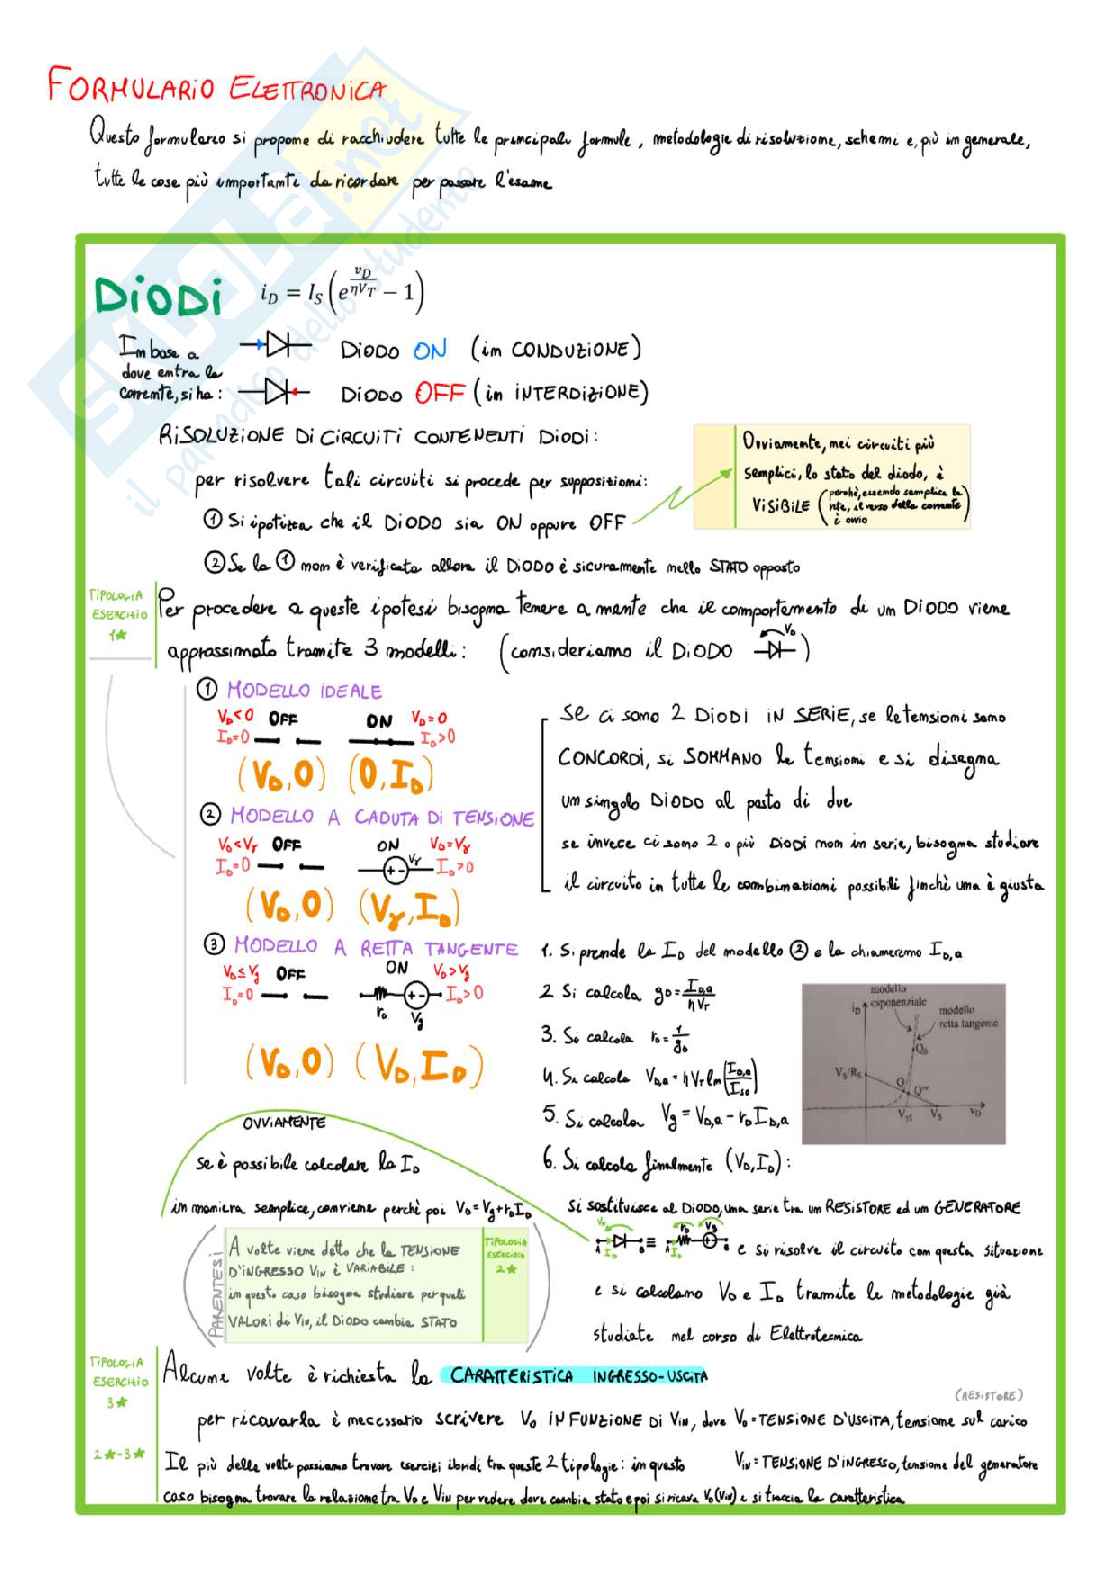 FORMULARIO ELETTRONICA
Questo formulario si propone di racchiudere tutte le principali formule, metodologie di risoluzione, schemi e, più in generale,
tutte le cose più importanti da ricordare per passare l'esame
SKUOLA.net
il paradiso dello studente
DiODi
i_D = I_S (e^{v_D/ηV_T} − 1)
In base a
dove entra la
corrente, si ha:
DIODO ON (in CONDUZIONE)
DIODO OFF (in INTERDIZIONE)
RISOLUZIONE DI CIRCUITI CONTENENTI DIODI:
per risolvere tali circuiti si procede per supposizioni:
① Si ipotizza che il DIODO sia ON oppure OFF
② Se la ① non è verificata allora il DIODO è sicuramente nello STATO opposto
Ovviamente, nei circuiti più
semplici, lo stato del diodo, è
VISIBILE (perchè, essendo semplice la
rete, il verso della corrente
è ovvio)
TIPOLOGIA
ESERCIZIO
1★
Per procedere a queste ipotesi bisogna tenere a mente che il comportamento di un DIODO viene
approssimato tramite 3 modelli: (consideriamo il DIODO V_D)
① MODELLO IDEALE
V_D<0 OFF ON V_D=0
I_D=0 I_D>0
(V_D,0) (0,I_D)
② MODELLO A CADUTA DI TENSIONE
V_D<V_γ OFF ON V_D=V_γ
I_D=0 V_γ I_D>0
(V_D,0) (V_γ,I_D)
③ MODELLO A RETTA TANGENTE
V_D≤V_g OFF ON V_D>V_g
I_D=0 I_D>0
r_D V_g
(V_D,0) (V_D,I_D)
Se ci sono 2 DIODI IN SERIE, se le tensioni sono
CONCORDI, si SOMMANO le tensioni e si disegna
un singolo DIODO al posto di due
se invece ci sono 2 o più DIODI non in serie, bisogna studiare
il circuito in tutte le combinazioni possibili finchè una è giusta
1. Si prende la I_D del modello ② e la chiameremo I_D,a
2 Si calcola g_D = I_D,a/ηV_T
3. Si calcola r_D = 1/g_D
4. Si calcola V_D,a = ηV_T ln(I_D,a/I_SO)
5. Si calcola V_g = V_D,a − r_D I_D,a
6. Si calcola finalmente (V_D,I_D):
modello
esponenziale
i_D
modello
retta tangente
Q_D
V_S/R_S
Q
Q'''
V_γ V_S v_D
OVVIAMENTE
se è possibile calcolare la I_D
in maniera semplice, conviene perchè poi V_D=V_g+r_D I_D
si sostituisce al DIODO, una serie tra un RESISTORE ed un GENERATORE
V_D r_D V_g
A I_D B ≡ A I_D B e si risolve il circuito con questa situazione
e si calcolano V_D e I_D tramite le metodologie già
studiate nel corso di Elettrotecnica
PARENTESI
A volte viene detto che la TENSIONE
D'INGRESSO V_IN è VARIABILE:
in questo caso bisogna studiare per quali
VALORI di V_IN, il DIODO cambia STATO
TIPOLOGIA
ESERCIZIO
2★
TIPOLOGIA
ESERCIZIO
3★
Alcune volte è richiesta la CARATTERISTICA INGRESSO-USCITA
(RESISTORE)
per ricavarla è necessario scrivere V_O IN FUNZIONE DI V_IN, dove V_O=TENSIONE D'USCITA, tensione sul carico
2★-3★
Il più delle volte possiamo trovare esercizi ibridi tra queste 2 tipologie: in questo
V_IN=TENSIONE D'INGRESSO, tensione del generatore
caso bisogna trovare la relazione tra V_O e V_IN per vedere dove cambia stato e poi si ricava V_O(V_IN) e si traccia la caratteristica